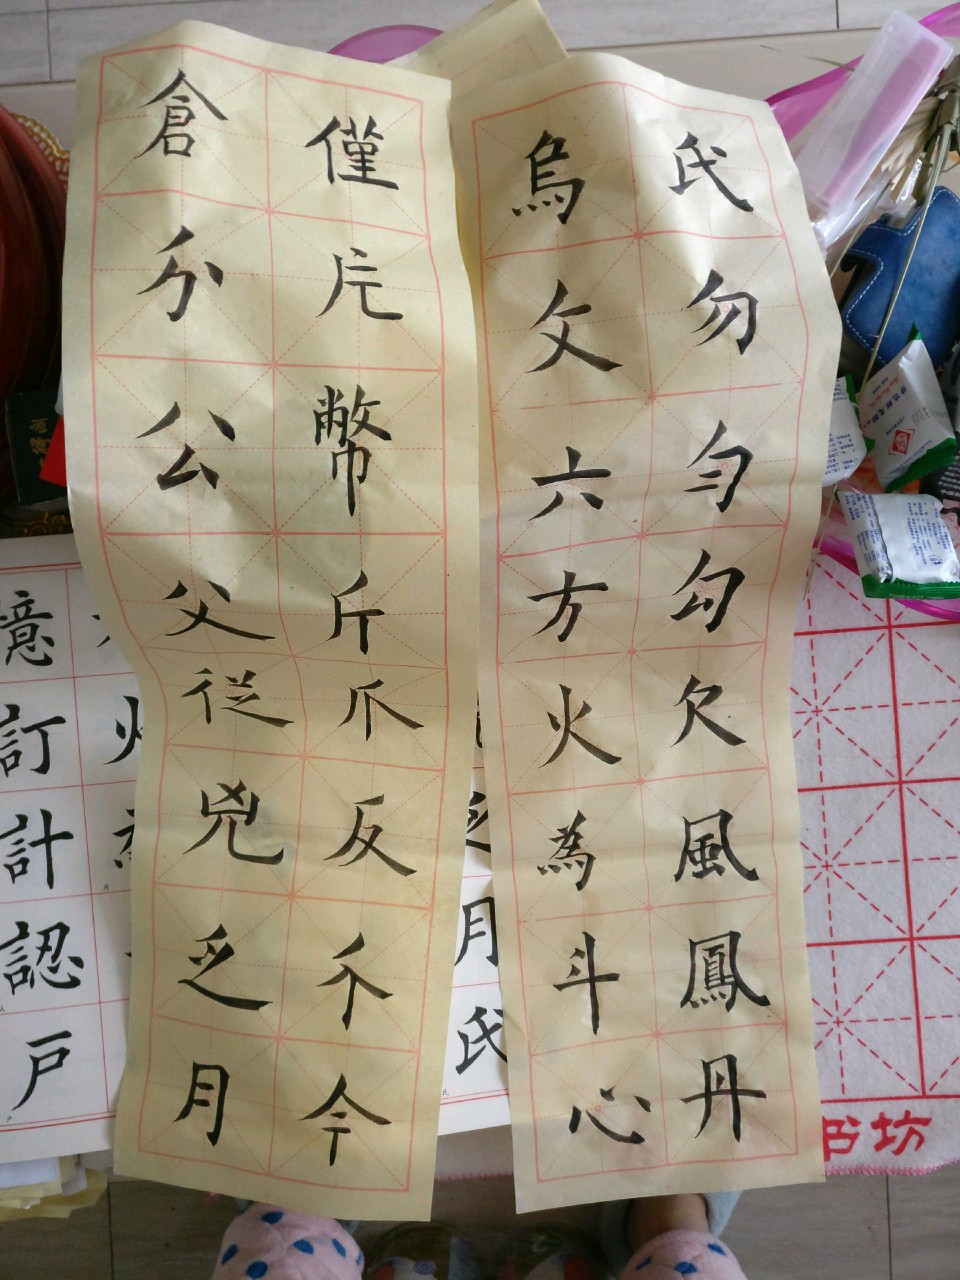 氏勿勻勾欠風鳳丹
烏文六方火為斗心
僅片幣斤爪反介今
倉分公父從兇乏月
乏月氏
憶訂計認戶
书坊